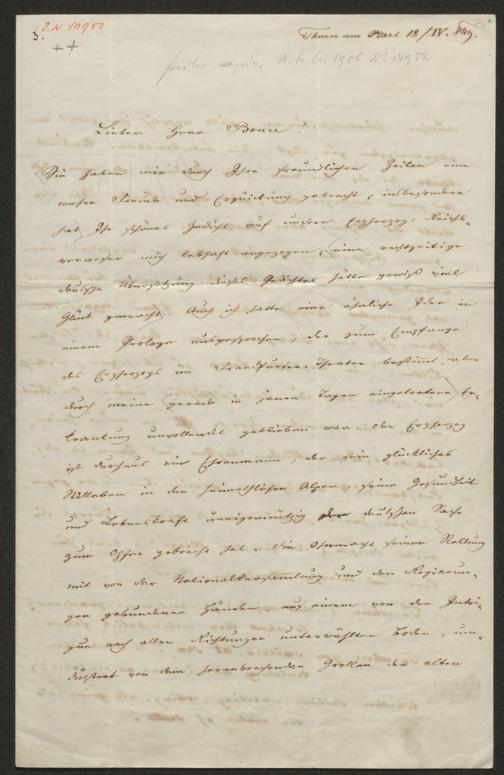 J.N 11953
3.
Thurn am Hart 18/IV. 849.
Lieber Herr Boner!
Sie haben mir durch Ihre freundlichen Zeilen eine
wahre Freude und Erquickung gebracht; insbesondere
hat Ihr schönes Gedicht auf unsern Erzherzog-Reichs-
verweser mich lebhaft angezogen; eine rechtzeitige
deutsche Übersetzung dieses Gedichtes hätte gewiß viel
Glück gemacht. Auch ich hatte eine ähnliche Idee in
einem Prologe ausgesprochen, der zum Empfange
des Erzherzogs im Frankfurter-Theater bestimmt, aber
durch meine gerade in jenen Tagen eingetretene Er-
krankung unvollendet geblieben war. Der Erzherzog
ist durchaus ein Ehrenmann, der sein glückliches
Stilleben in den heimathlichen Alpen, seine Gesundheit
und Lebenskraft uneigennützig der deutschen Sache
zum Opfer gebracht hat. Die Ohnmacht seiner Stellung
mit von der Nationalversammlung und den Regierun-
gen gebundenen Händen, auf einem von der Intri-
gue nach allen Richtungen unterwühlten Boden, um-
düstert von dem heranbrechenden Grollen der alten